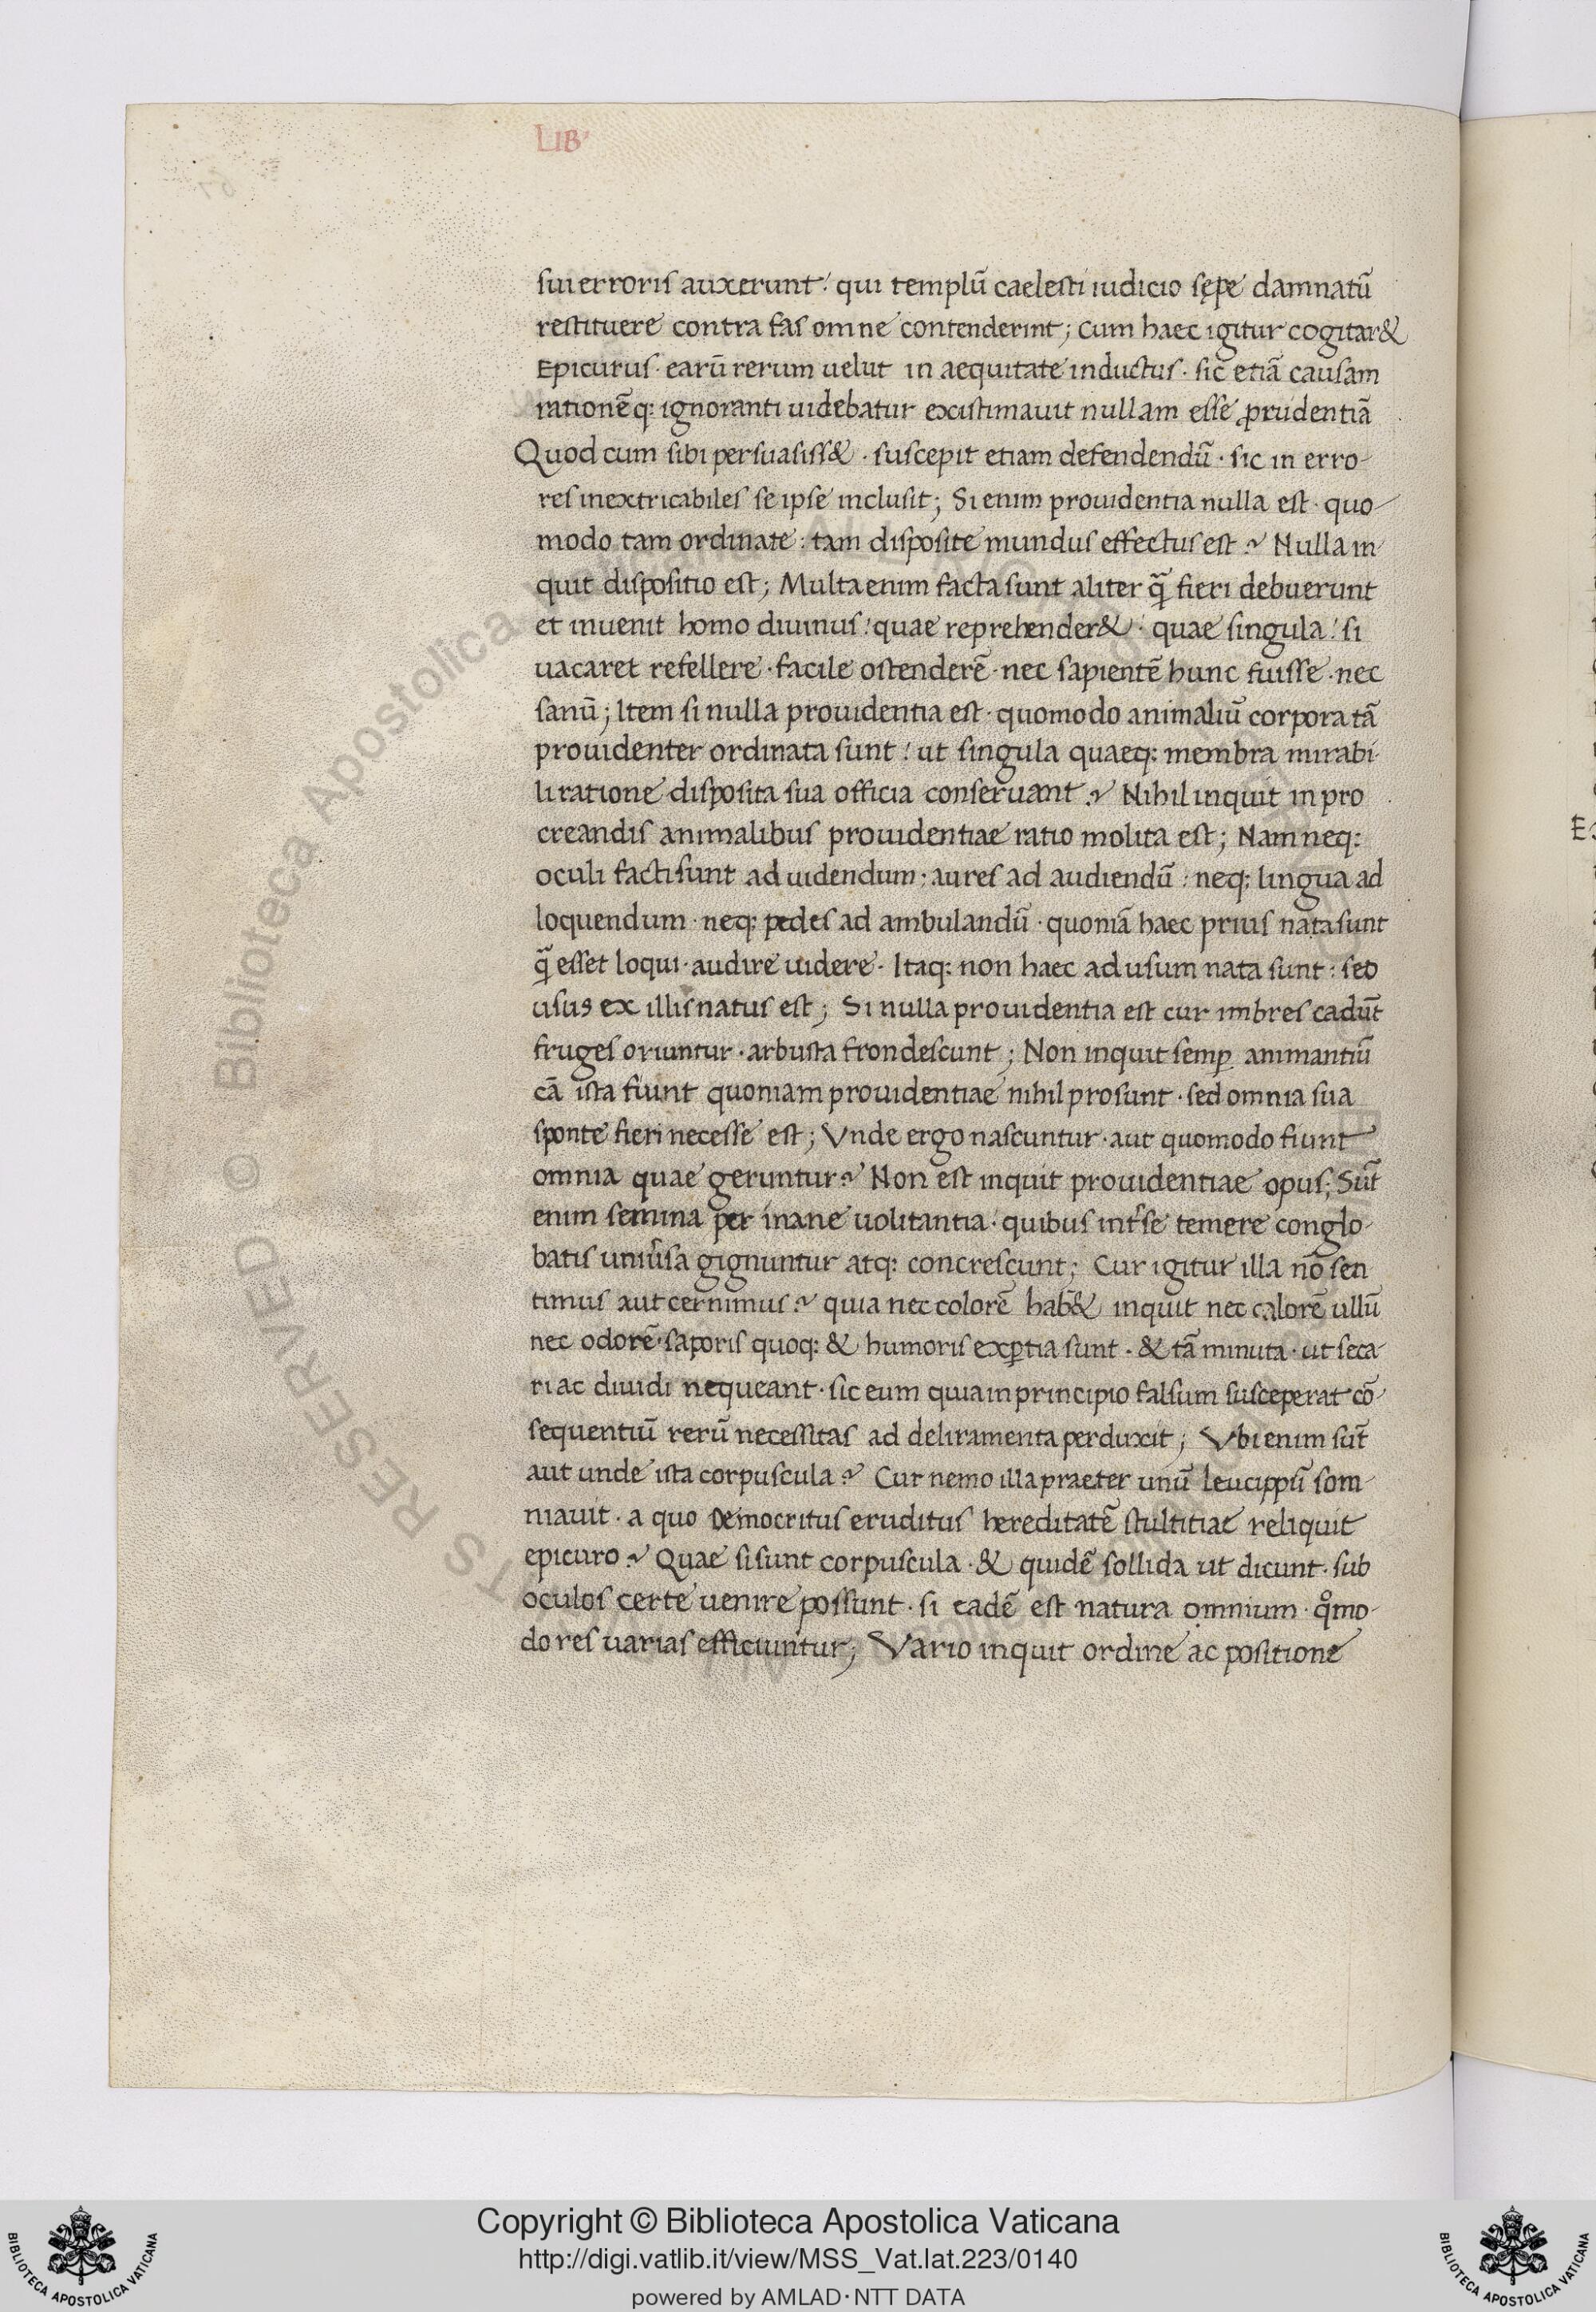 LIB'
sui erroris auxerunt! qui templū caelesti iudicio sępe damnatū
restituere contra fas omne contenderint; Cum haec igitur cogitar&
Epicurus· earū rerum uelut in aequitate inductus· sic etiā causam
rationēq: ignoranti uidebatur existimauit nullam esse ꝓrudentiā
Quod cum sibi persuasiss&· suscepit etiam defendendū· sic in erro-
res inextricabiles se ipse inclusit; Si enim prouidentia nulla est· quo-
modo tam ordinate: tam disposite mundus effectus est? Nulla in-
quit dispositio est; Multa enim facta sunt aliter q̄ fieri debuerunt
et inuenit homo diuinus! quae reprehender&· quae singula! si
uacaret refellere· facile ostenderē· nec sapientē hunc fuisse· nec
sanū; Item si nulla prouidentia est· quomodo animaliū corpora tā
prouidenter ordinata sunt! ut singula quaeq: membra mirabi-
li ratione disposita sua officia conseruant? Nihil inquit in pro
creandis animalibus prouidentiae ratio molita est; Nam neq:
oculi facti sunt ad uidendum; aures ad audiendū: neq: lingua ad
loquendum· neq: pedes ad ambulandū· quoniā haec prius nata sunt
q̄ esset loqui· audire uidere· Itaq: non haec ad usum nata sunt: sed
usus ex illis natus est; Si nulla prouidentia est cur imbres cadūt
fruges oriuntur· arbusta frondescunt; Non inquit semꝑ animantiū
cā ista fiunt quoniam prouidentiae nihil prosunt· sed omnia sua
sponte fieri necesse est; Vnde ergo nascuntur· aut quomodo fiunt
omnia quae geruntur? Non est inquit prouidentiae opus; Sūt
enim semina per inane uolitantia· quibus int'se temere conglo-
batis uniu'sa gignuntur atq: concrescunt; Cur igitur illa nō sen
timus aut cernimus? quia nec colorē hab& inquit nec calorē ullū
nec odorē· saporis quoq: & humoris exꝑtia sunt· & tā minuta· ut seca-
ri ac diuidi nequeant· sic eum quia in principio falsum susceperat cō-
sequentiū rerū necessitas ad deliramenta perduxit; Vbi enim sūt
aut unde ista corpuscula? Cur nemo illa praeter unū leucippū som-
niauit· a quo Democritus eruditus hereditatē stultitiae reliquit
epicuro? Quae si sunt corpuscula· & quidē sollida ut dicunt· sub
oculos certe uenire possunt· si eadē est natura omnium· qͦmo-
do res uarias efficiuntur; Vario inquit ordine ac positione
Copyright © Biblioteca Apostolica Vaticana
http://digi.vatlib.it/view/MSS_Vat.lat.223/0140
powered by AMLAD·NTT DATA